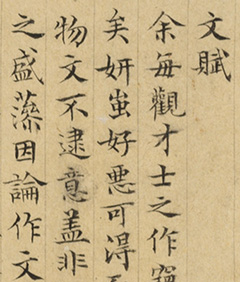 文賦
余每觀才士之作窺
矣妍蚩好悪可得
物文不逮意盖非
之盛藻因論作文